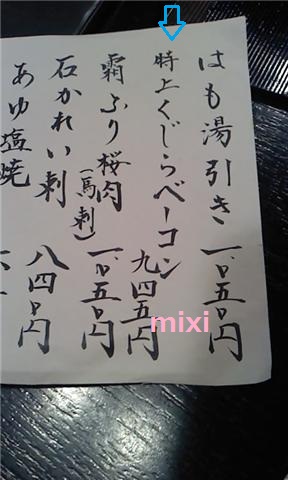 はも湯引き 一、〇五〇円
特上くじらベーコン 九四五円
霜ふり桜肉(馬刺) 一、〇五〇円
石かれい刺 八四〇円
あゆ塩焼
mixi